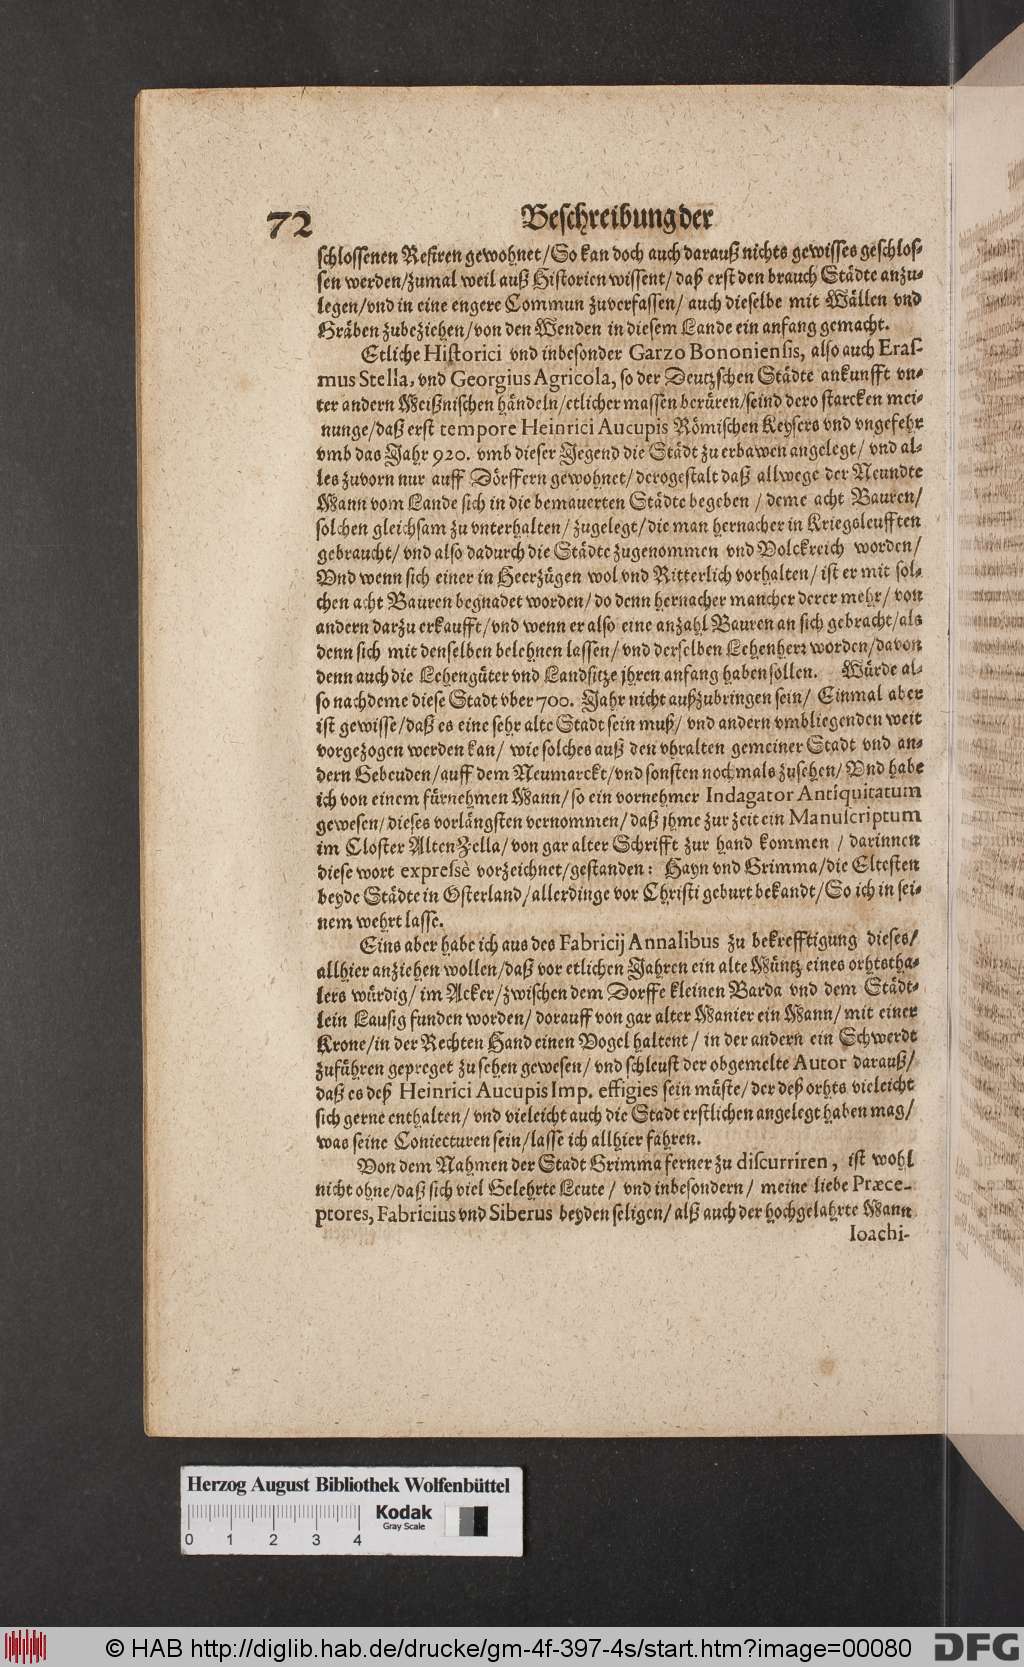 72 Beschreibung der
schlossenen Refiren gewohnet/So kan doch auch darauß nichts gewisses geschlos-
sen werden/zumal weil auß Historien wissent/ daß erst den brauch Städte anzu-
legen/vnd in eine engere Commun zuverfassen/ auch dieselbe mit Wällen vnd
Gräben zubeziehen/von den Wenden in diesem Lande ein anfang gemacht.
Etliche Historici vnd inbesonder Garzo Bononiensis, also auch Eras-
mus Stella, vnd Georgius Agricola, so der Deutzschen Städte ankunfft vn-
ter andern Meißnischen händeln/etlicher massen berüren/seind dero starcken mei-
nunge/daß erst tempore Heinrici Aucupis Römischen Keysers vnd vngefehr
vmb das Jahr 920. vmb dieser Jegend die Städt zu erbawen angelegt/ vnd al-
les zuvorn nur auff Dörffern gewohnet/derogestalt daß allwege der Neundte
Mann vom Lande sich in die bemauerten Städte begeben / deme acht Bauren/
solchen gleichsam zu vnterhalten/ zugelegt/die man hernacher in Kriegsleufften
gebraucht/ vnd also dadurch die Städte zugenommen vnd Volckreich worden/
Vnd wenn sich einer in Heerzügen wol vnd Ritterlich vorhalten/ ist er mit sol-
chen acht Bauren begnadet worden/ do denn hernacher mancher derer mehr/ von
andern darzu erkaufft/vnd wenn er also eine anzahl Bauren an sich gebracht/als
denn sich mit denselben belehnen lassen/ vnd derselben Lehenherr worden/davon
denn auch die Lehengüter vnd Landsitze jhren anfang haben sollen. Würde al-
so nachdeme diese Stadt vber 700. Jahr nicht außzubringen sein/ Einmal aber
ist gewisse/daß es eine sehr alte Stadt sein muß/ vnd andern vmbliegenden weit
vorgezogen werden kan/ wie solches auß den vhralten gemeiner Stadt vnd an-
dern Gebeuden/auff dem Neumarckt/vnd sonsten nochmals zusehen/ Vnd habe
ich von einem fürnehmen Mann/so ein vornehmer Indagator Antiquitatum
gewesen/dieses vorlängsten vernommen/ daß jhme zur zeit ein Manuscriptum
im Closter AltenZella/von gar alter Schrifft zur hand kommen / darinnen
diese wort expressè vorzeichnet/gestanden: Hayn vnd Grimma/die Eltesten
beyde Städte in Osterland/allerdinge vor Christi geburt bekandt/So ich in sei-
nem wehrt lasse.
Eins aber habe ich aus des Fabricij Annalibus zu bekrefftigung dieses/
allhier anziehen wollen/daß vor etlichen Jahren ein alte Müntz eines orhtstha-
lers würdig/ im Acker/zwischen dem Dorffe kleinen Barda vnd dem Städt-
lein Lausig funden worden/ dorauff von gar alter Manier ein Mann/ mit einer
Krone/in der Rechten Hand einen Vogel haltent/ in der andern ein Schwerdt
zufähren gepreget zu sehen gewesen/ vnd schleust der obgemelte Autor darauß/
daß es deß Heinrici Aucupis Imp. effigies sein müste/der deß orhts vieleicht
sich gerne enthalten/ vnd vieleicht auch die Stadt erstlichen angelegt haben mag/
was seine Coniecturen sein/lasse ich allhier fahren.
Von dem Nahmen der Stadt Grimma ferner zu discurriren, ist wohl
nicht ohne/daß sich viel Gelehrte Leute/ vnd inbesondern/ meine liebe Præce-
ptores, Fabricius vnd Siberus beyden seligen/alß auch der hochgelahrte Mann
Ioachi-
Herzog August Bibliothek Wolfenbüttel
Kodak
Gray Scale
0 1 2 3 4
© HAB http://diglib.hab.de/drucke/gm-4f-397-4s/start.htm?image=00080 DFG